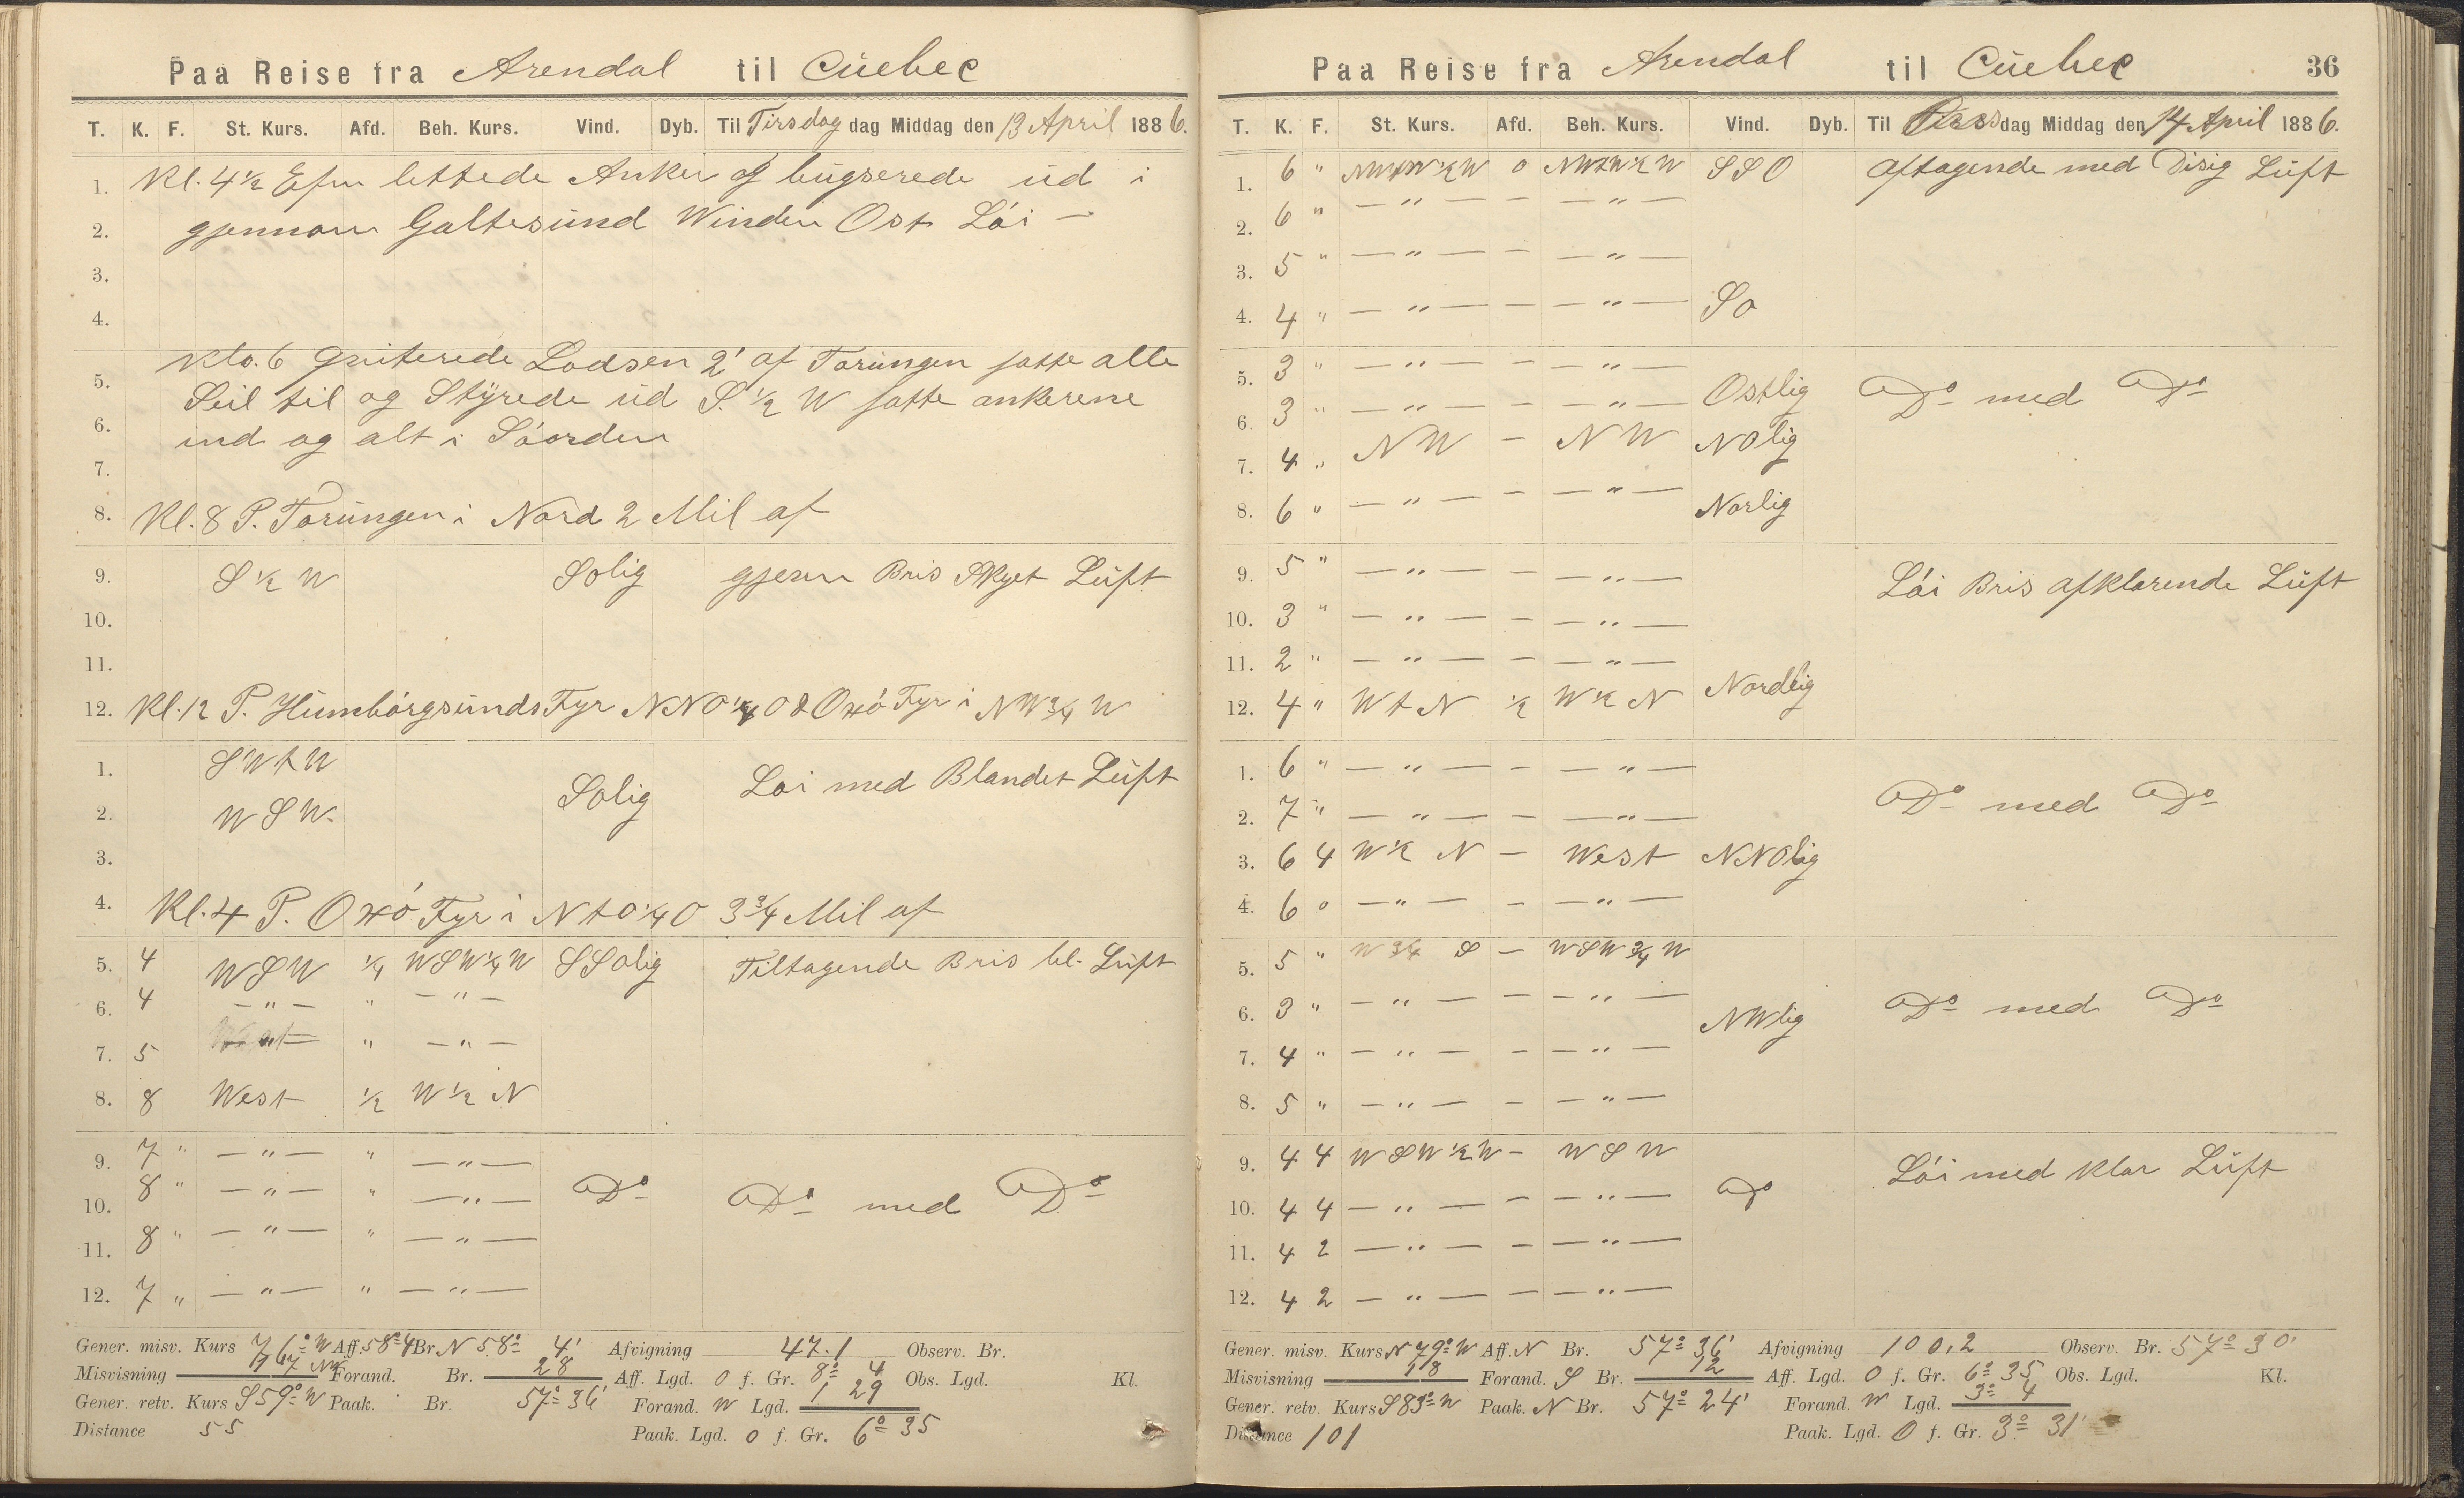 Paa Reise fra Arendal til Cüebec
T. K. F. St. Kurs. Afd. Beh. Kurs. Vind. Dyb. Til Tirsdag dag Middag den 13 April 1886.
1. Kl. 4 1/2 Efm lettede Anker og bügserede üd i
2. gjennom Galtesünd Winden Ost Löi —
3.
4.
Klo. 6 qviterede Lodsen 2' af Torüngen satte alle
5. Seil til og Stÿrede üd S. 1/2 W satte ankerene
6. ind og alt i Söorden
7.
8. Kl. 8 P. Torüngen i Nord 2 Mil af
9. S 1/2 W Solig gjevn Bris Skyet Lüft
10.
11.
12. Kl. 12 P. Hümbörgsünds Fyr NNO 1/4 O & Oxö Fyr i NW 3/4 W
1. SWtW Solig Löi med Blandet Lüft
2. WSW.
3.
4. Kl. 4 P. Oxö Fyr i NtO 1/4 O 3 3/4 Mil af
5. 4 WSW 1/4 WSW 1/4 W SSolig Tiltagende Bris bl. Lüft
6. 4 — " — " — " —
7. 5 — " — " — " —
8. 8 West 1/2 W 1/2 N
9. 7 " — " — " — " —
10. 8 " — " — " — " — Do Do med Do
11. 8 " — " — " — " —
12. 7 " — " — " — " —
Gener. misv. Kurs 76° W Aff. 58° 4 Br N 58° 4' Afvigning 47.1 Observ. Br.
Misvisning 17 NW Forand. Br. 28 Aff. Lgd. O f. Gr. 8° 4 Obs. Lgd. Kl.
Gener. retv. Kurs S 59° W Paak. Br. 57° 36' Forand. W Lgd. 1 29
Distance 55 Paak. Lgd. O f. Gr. 6° 35
Paa Reise fra Arendal til Cüebec 36
T. K. F. St. Kurs. Afd. Beh. Kurs. Vind. Dyb. Til dag Middag den 14 April 1886.
1. 6 " NWtW 1/2 W o NWtW 1/2 W SSO Aftagende med Disig Lüft
2. 6 " — " — — — " —
3. 5 " — " — — — " —
4. 4 " — " — — — " — So
5. 3 " — " — — — " —
6. 3 " — " — — — " — Ostlig Do med Do
7. 4 " NW — NW NOlig
8. 6 " — " — — — " — Norlig
9. 5 " — " — — — " — Löi Bris afklarende Lüft
10. 3 " — " — — — " —
11. 2 " — " — — — " —
12. 4 " WtN 1/2 W 1/2 N Nordlig
1. 6 " — " — — — " —
2. 7 " — " — — — " — Do med Do
3. 6 4 W 1/2 N — West NNOlig
4. 6 o — " — — — " —
5. 5 " W 3/4 S — WSW 3/4 W
6. 3 " — " — — — " — NWlig Do med Do
7. 4 " — " — — — " —
8. 5 " — " — — — " —
9. 4 4 WSW 1/2 W — WSW Löi med klar Lüft
10. 4 4 — " — — — " — Do
11. 4 2 — " — — — " —
12. 4 2 — " — — — " —
Gener. misv. Kurs N 79° W Aff. N Br. 57° 36' Afvigning 100,2 Observ. Br. 57° 30'
Misvisning 18 Forand. S Br. 12 Aff. Lgd. O f. Gr. 6° 35 Obs. Lgd. Kl.
Gener. retv. Kurs S 83° W Paak. N Br. 57° 24' Forand. W Lgd. 3° 4
Distance 101 Paak. Lgd. O f. Gr. 3° 31'